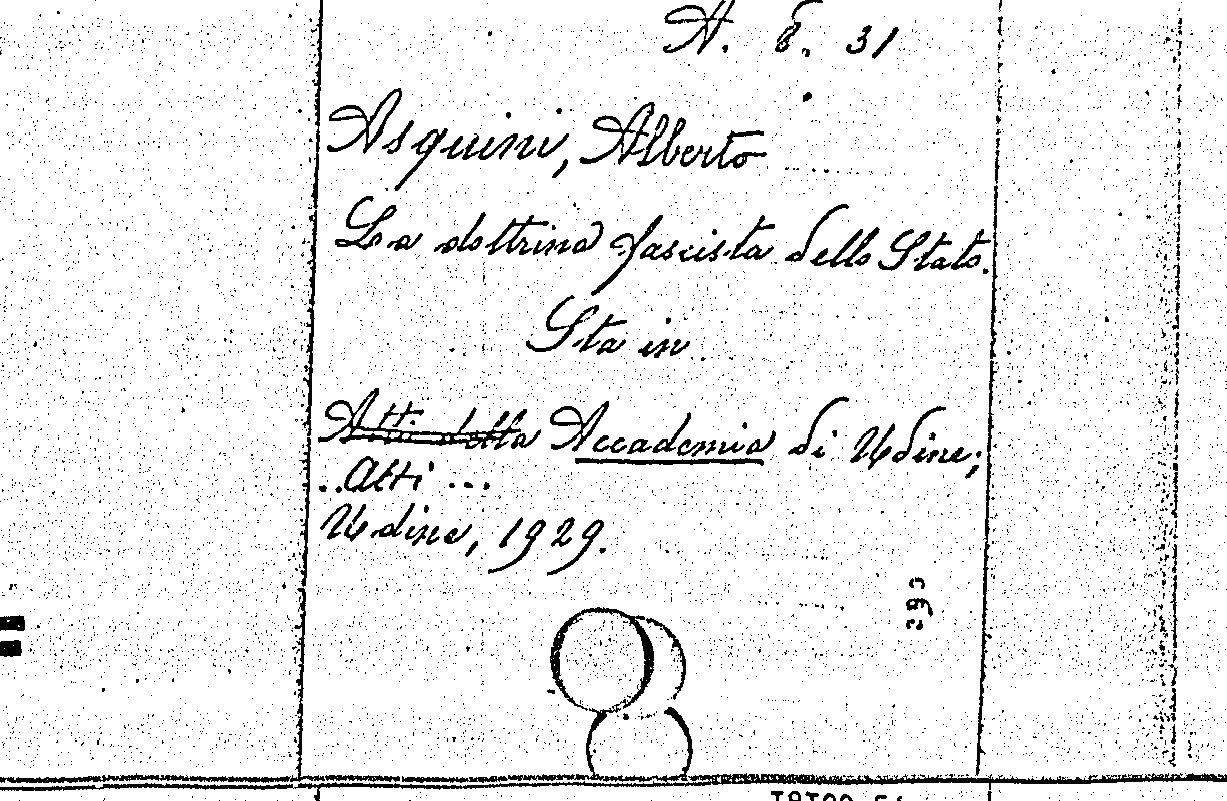 A. δ. 31
Asquini, Alberto
La dottrina fascista dello Stato.
Sta in
Atti della Accademia di Udine;
..Atti ...
Udine, 1929.